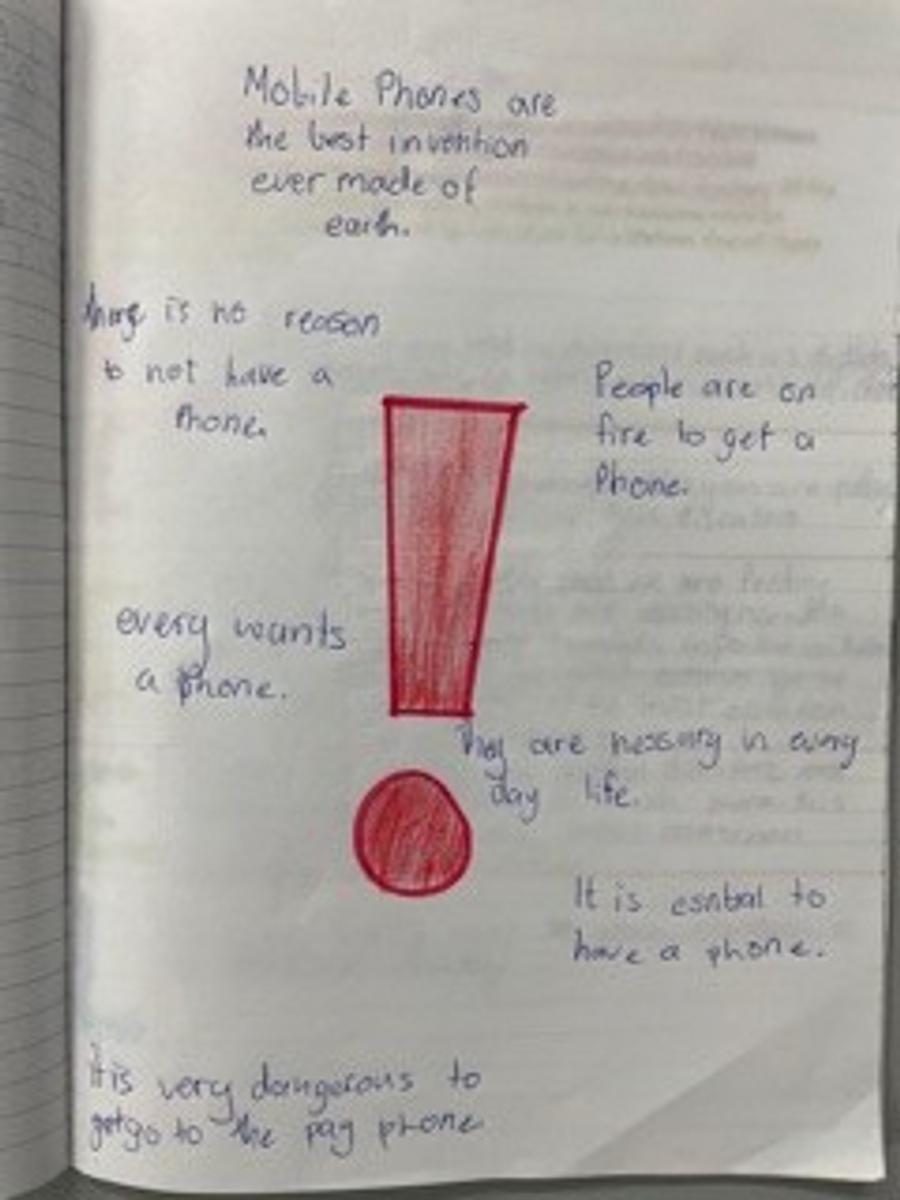 Mobile Phones are
the best invention
ever made of
earth.
there is no reason
to not have a
Phone.
People are on
fire to get a
Phone.
every wants
a phone.
They are nessary in every
day life.
It is esntial to
have a phone.
It is very dangerous to
go to the pay phone